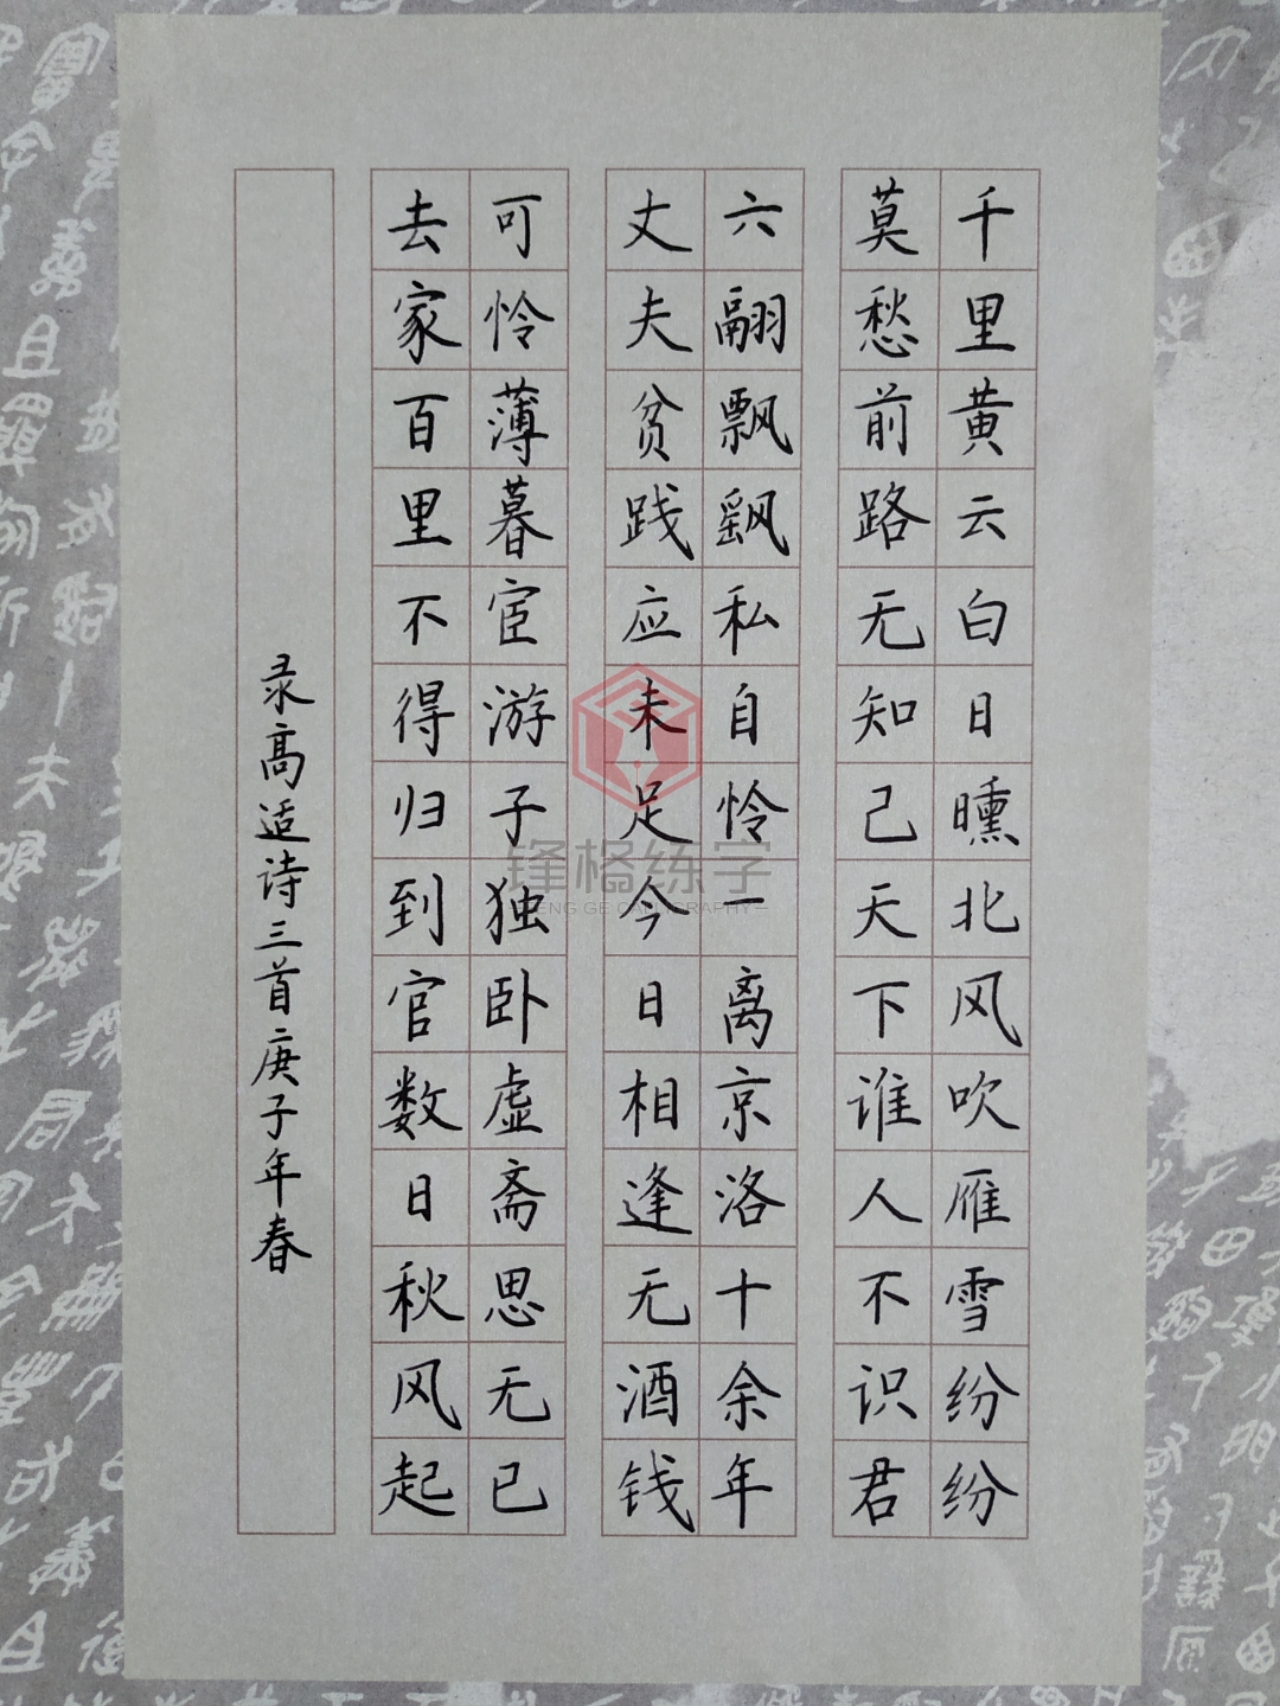 千里黄云白日曛北风吹雁雪纷纷
莫愁前路无知己天下谁人不识君
六翮飘飖私自怜一离京洛十余年
丈夫贫践应未足今日相逢无酒钱
可怜薄暮宦游子独卧虚斋思无已
去家百里不得归到官数日秋风起
录高适诗三首庚子年春
锋格练字
FENG GE CALLIGRAPHY